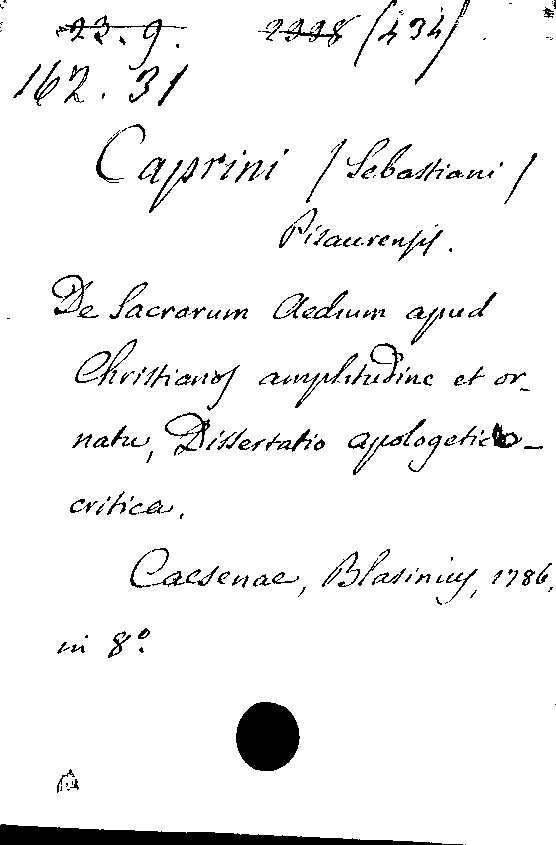 23. 9. 2338 (434)
162. 31
Caprini (Sebastiani)
Pisaurensis.
De Sacrorum Aedium apud
Christianos amplitudine et or-
natu, Dissertatio apologetico-
critica.
Caesenae, Blasinius, 1786,
in 8º.